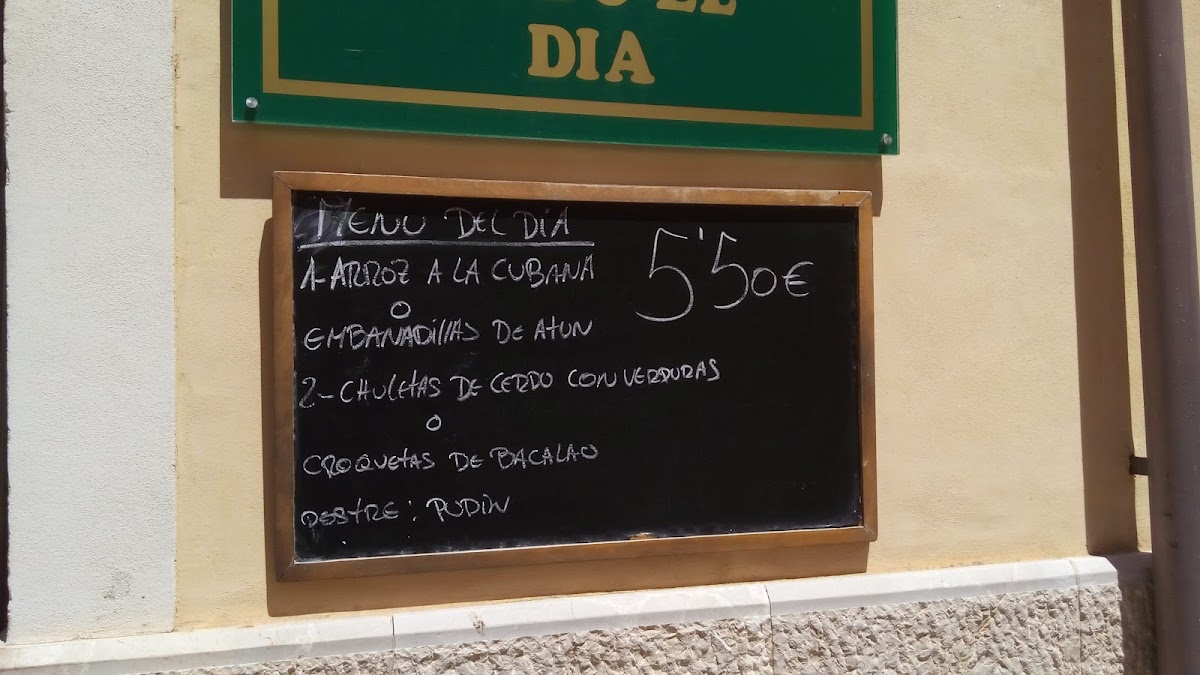 DIA
MENU DEL DÍA
5'50€
1-ARROZ A LA CUBANA
O
EMBANADillAS DE AtUN
2-CHULEtAS DE CERDO CON VERDURAS
O
CROQUEtAS DE BACALAO
POStRE: PUDIN